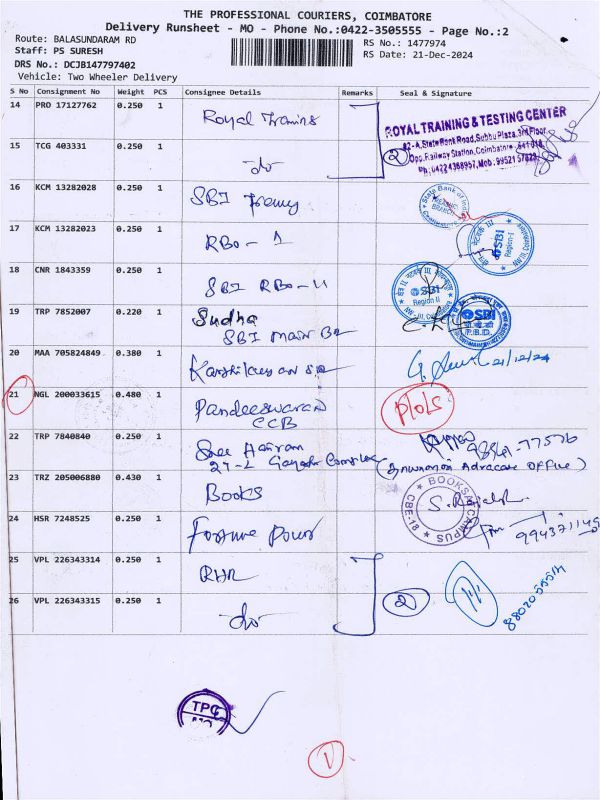 THE PROFESSIONAL COURIERS, COIMBATORE
Delivery Runsheet - MO - Phone No.:0422-3505555 - Page No.:2
Route: BALASUNDARAM RD
RS No.: 1477974
Staff: PS SURESH
RS Date: 21-Dec-2024
DRS No.: DCJB147797402
Vehicle: Two Wheeler Delivery
S No Consignment No Weight PCS Consignee Details Remarks Seal & Signature
14 PRO 17127762 0.250 1 Royal Training
ROYAL TRAINING & TESTING CENTER
82-A, State Bank Road, Subbu Plaza, 3rd Floor,
Opp. Railway Station, Coimbatore - 641 018.
Ph: 0422 4368957, Mob: 9952157828
15 TCG 403331 0.250 1 do 2
16 KCM 13282028 0.250 1 SBI
State Bank of India
17 KCM 13282023 0.250 1 RBO - 1
SBI
Region-I
18 CNR 1843359 0.250 1 SBI RBO - II
SBI
Region II
19 TRP 7852007 0.220 1 Sudha
SBI Main Br
SBI
20 MAA 705824849 0.380 1 21/12/24
21 NGL 200033615 0.480 1 Pandeeswaran
CCB
22 TRP 7840840 0.250 1 Sree Hariram
27-L Complex
98941-77576
Advocate OFFice
23 TRZ 205006880 0.430 1 Books
BOOKS CAMPUS
CBE-18
24 HSR 7248525 0.250 1 Fortune Power
25 VPL 226343314 0.250 1 RHR
26 VPL 226343315 0.250 1 do 2
TPC
1